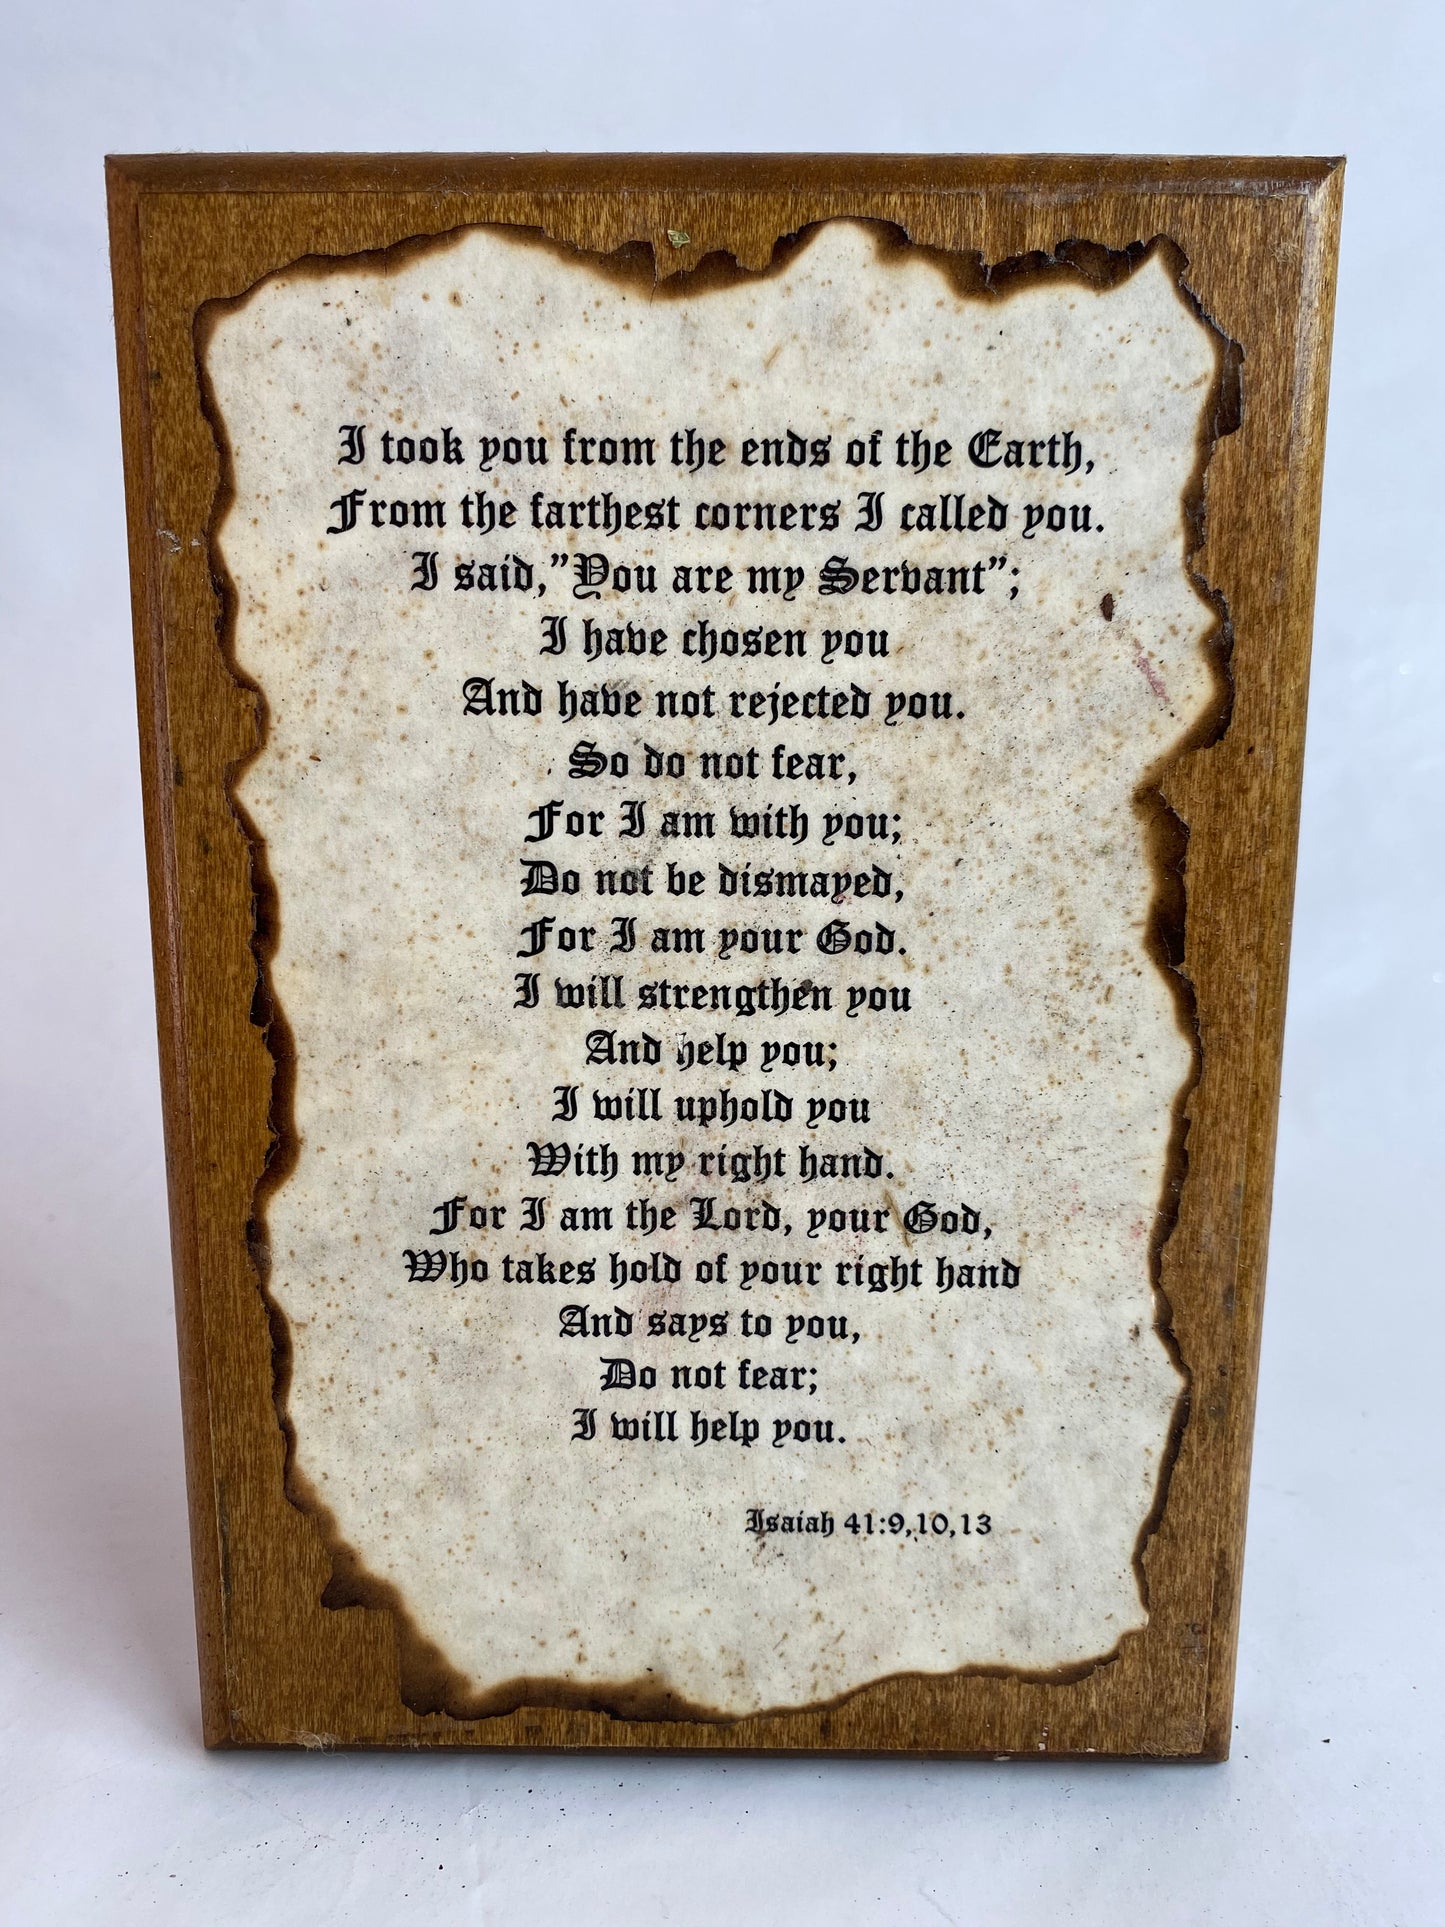 I took you from the ends of the Earth,
From the farthest corners I called you.
I said,"You are my Servant";
I have chosen you
And have not rejected you.
So do not fear,
For I am with you;
Do not be dismayed,
For I am your God.
I will strengthen you
And help you;
I will uphold you
With my right hand.
For I am the Lord, your God,
Who takes hold of your right hand
And says to you,
Do not fear;
I will help you.
Isaiah 41:9,10,13